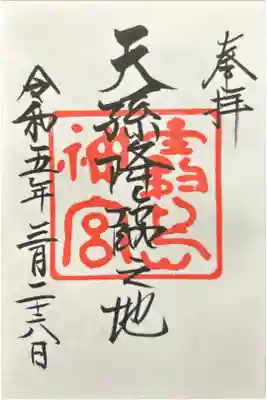 奉拝
天孫降臨之地
神宮
令和五年三月二十八日